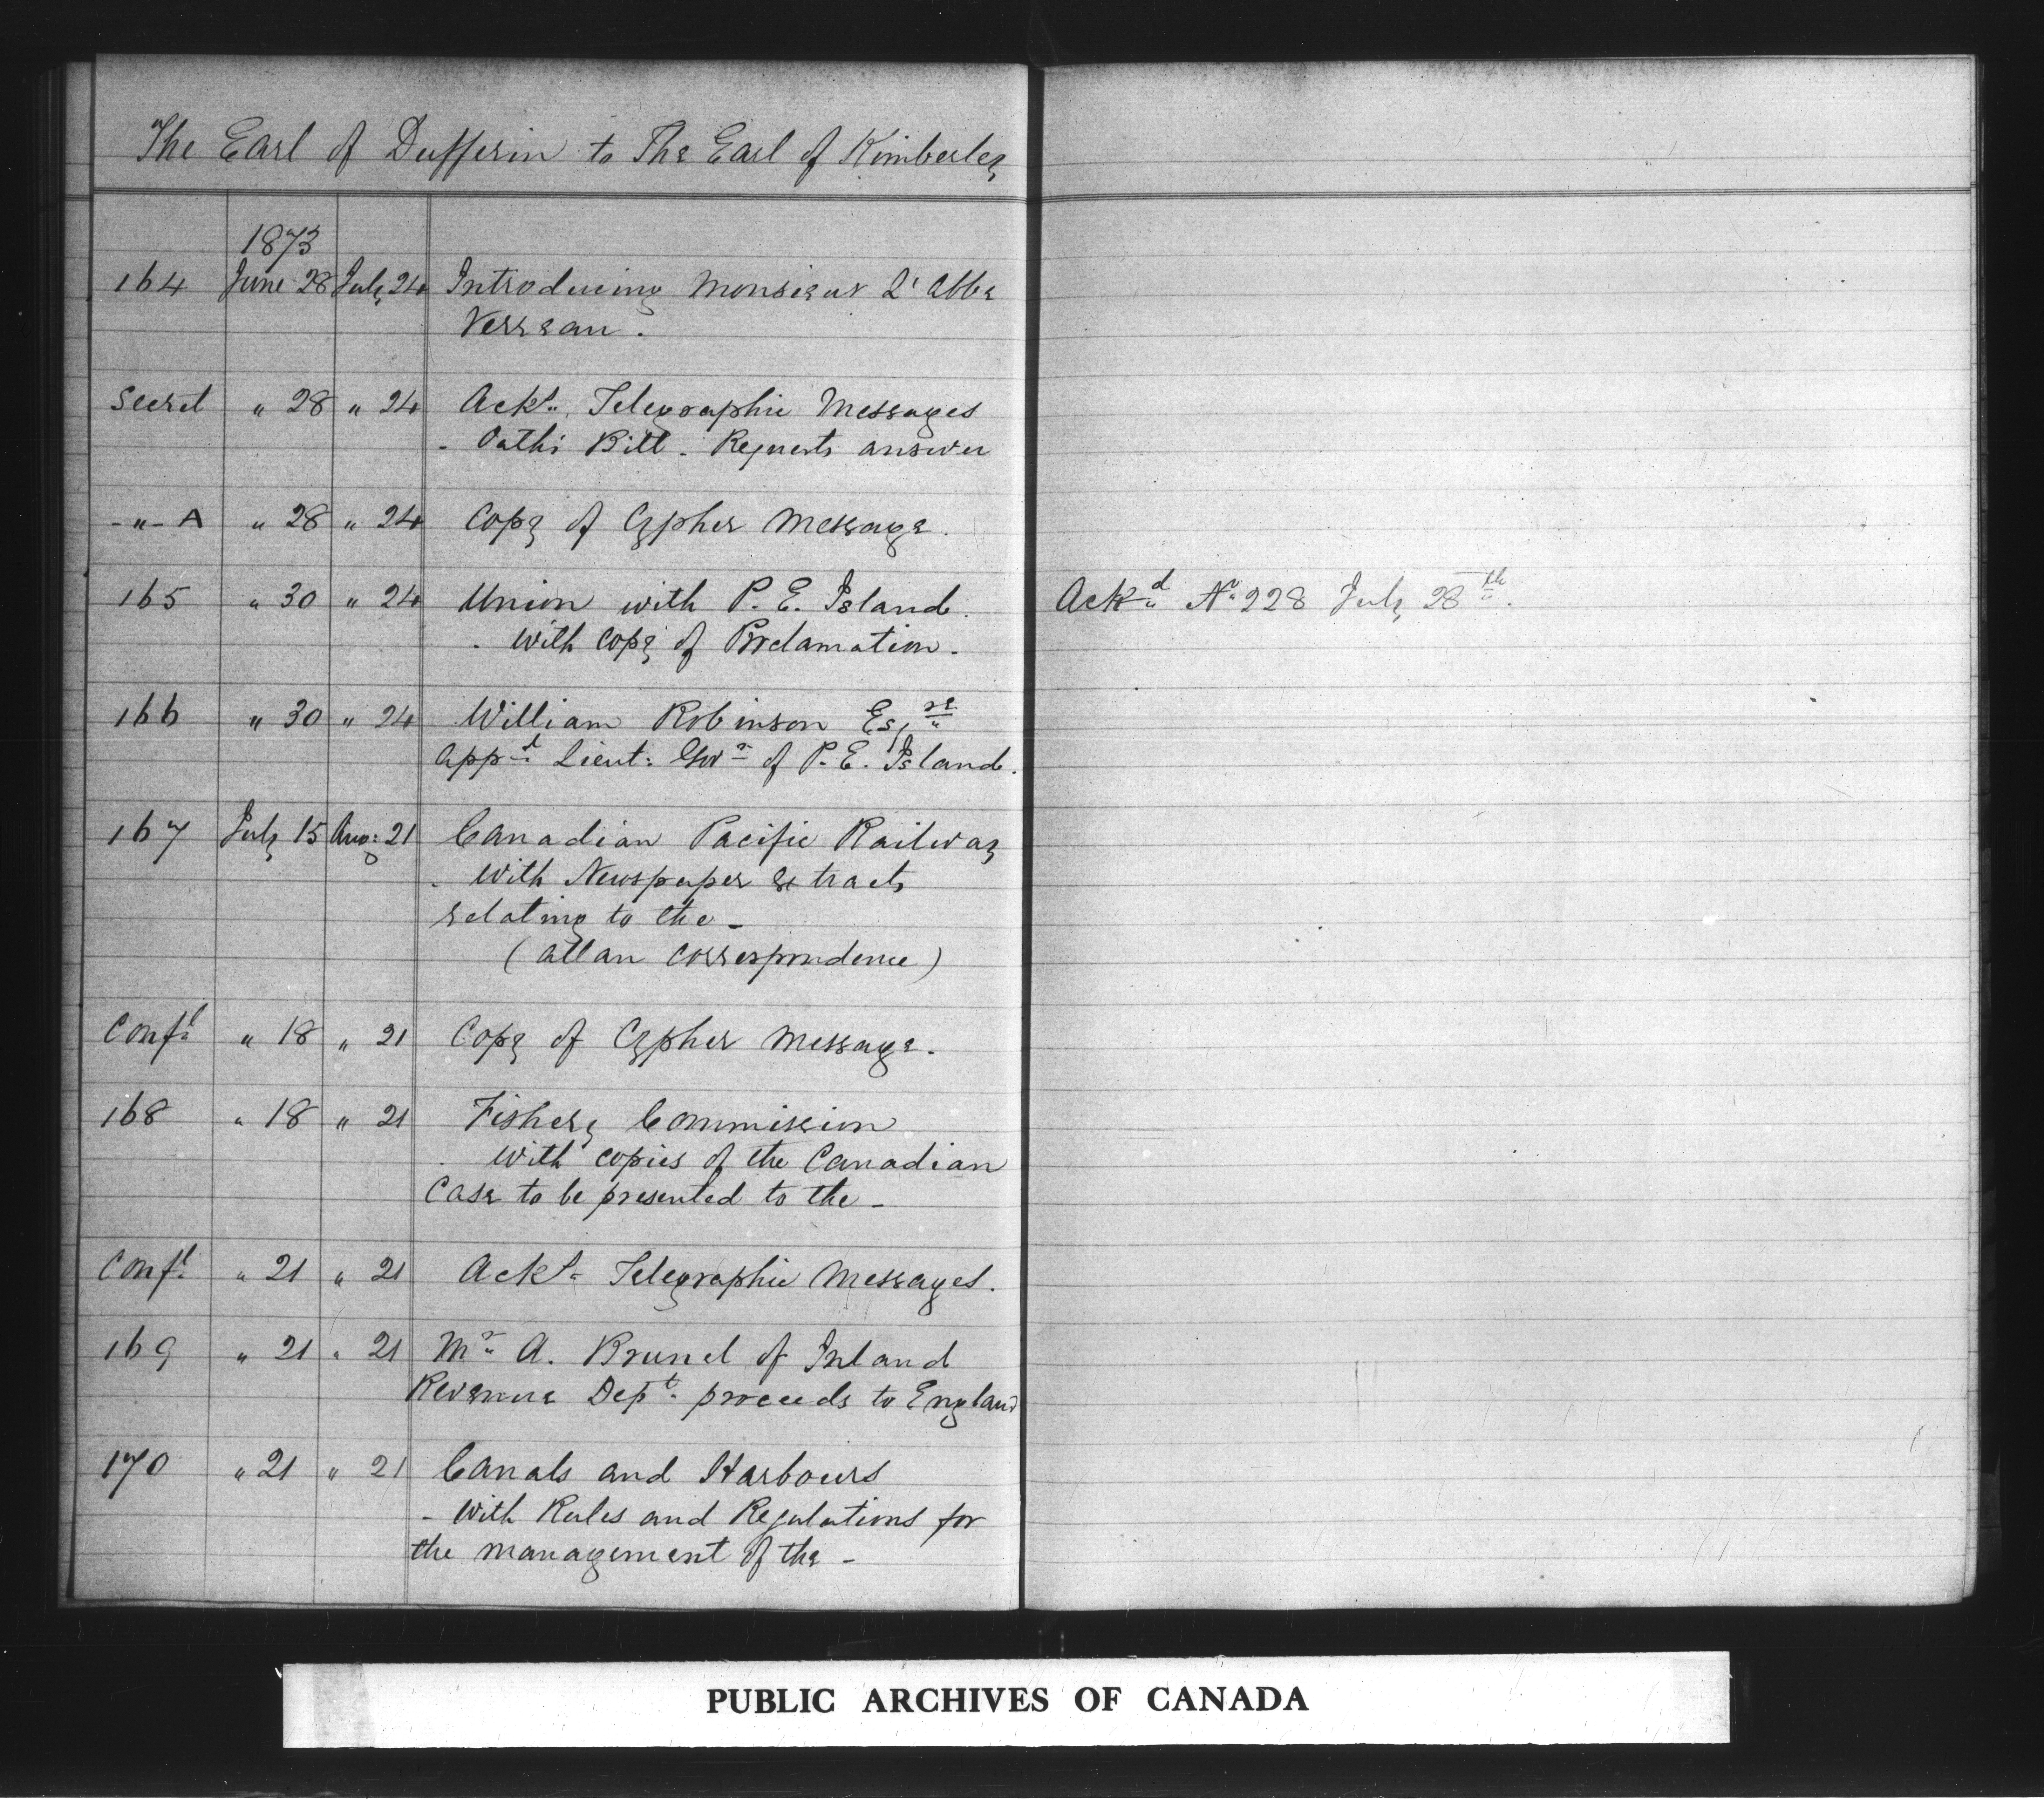 The Earl of Dufferin to The Earl of Kimberley
1873
164 June 28 July 24 Introducing Monsieur L'Abbe
Verreau.
Secret " 28 " 24 Ackt. Telegraphic Messages
- Oaths Bill - Requests answer
-"- A " 28 " 24 Copy of Cypher Message.
165 " 30 " 24 Union with P. E. Island. Ackd No 228 July 28th.
- with copy of Proclamation.
166 " 30 " 24 William Robinson Esqre
appd. Lieut: Govr of P. E. Island.
167 July 15 Aug: 21 Canadian Pacific Railway
- with Newspaper extracts
relating to the -
(Allan Correspondence)
Confl " 18 " 21 Copy of Cypher Message.
168 " 18 " 21 Fishery Commission
- with copies of the Canadian
Case to be presented to the -
Confl. " 21 " 21 Ackt. Telegraphic Messages.
169 " 21 " 21 Mr A. Brunel of Inland
Revenue Dept. proceeds to England
170 " 21 " 21 Canals and Harbours
- With Rules and Regulations for
the management of the -
PUBLIC ARCHIVES OF CANADA